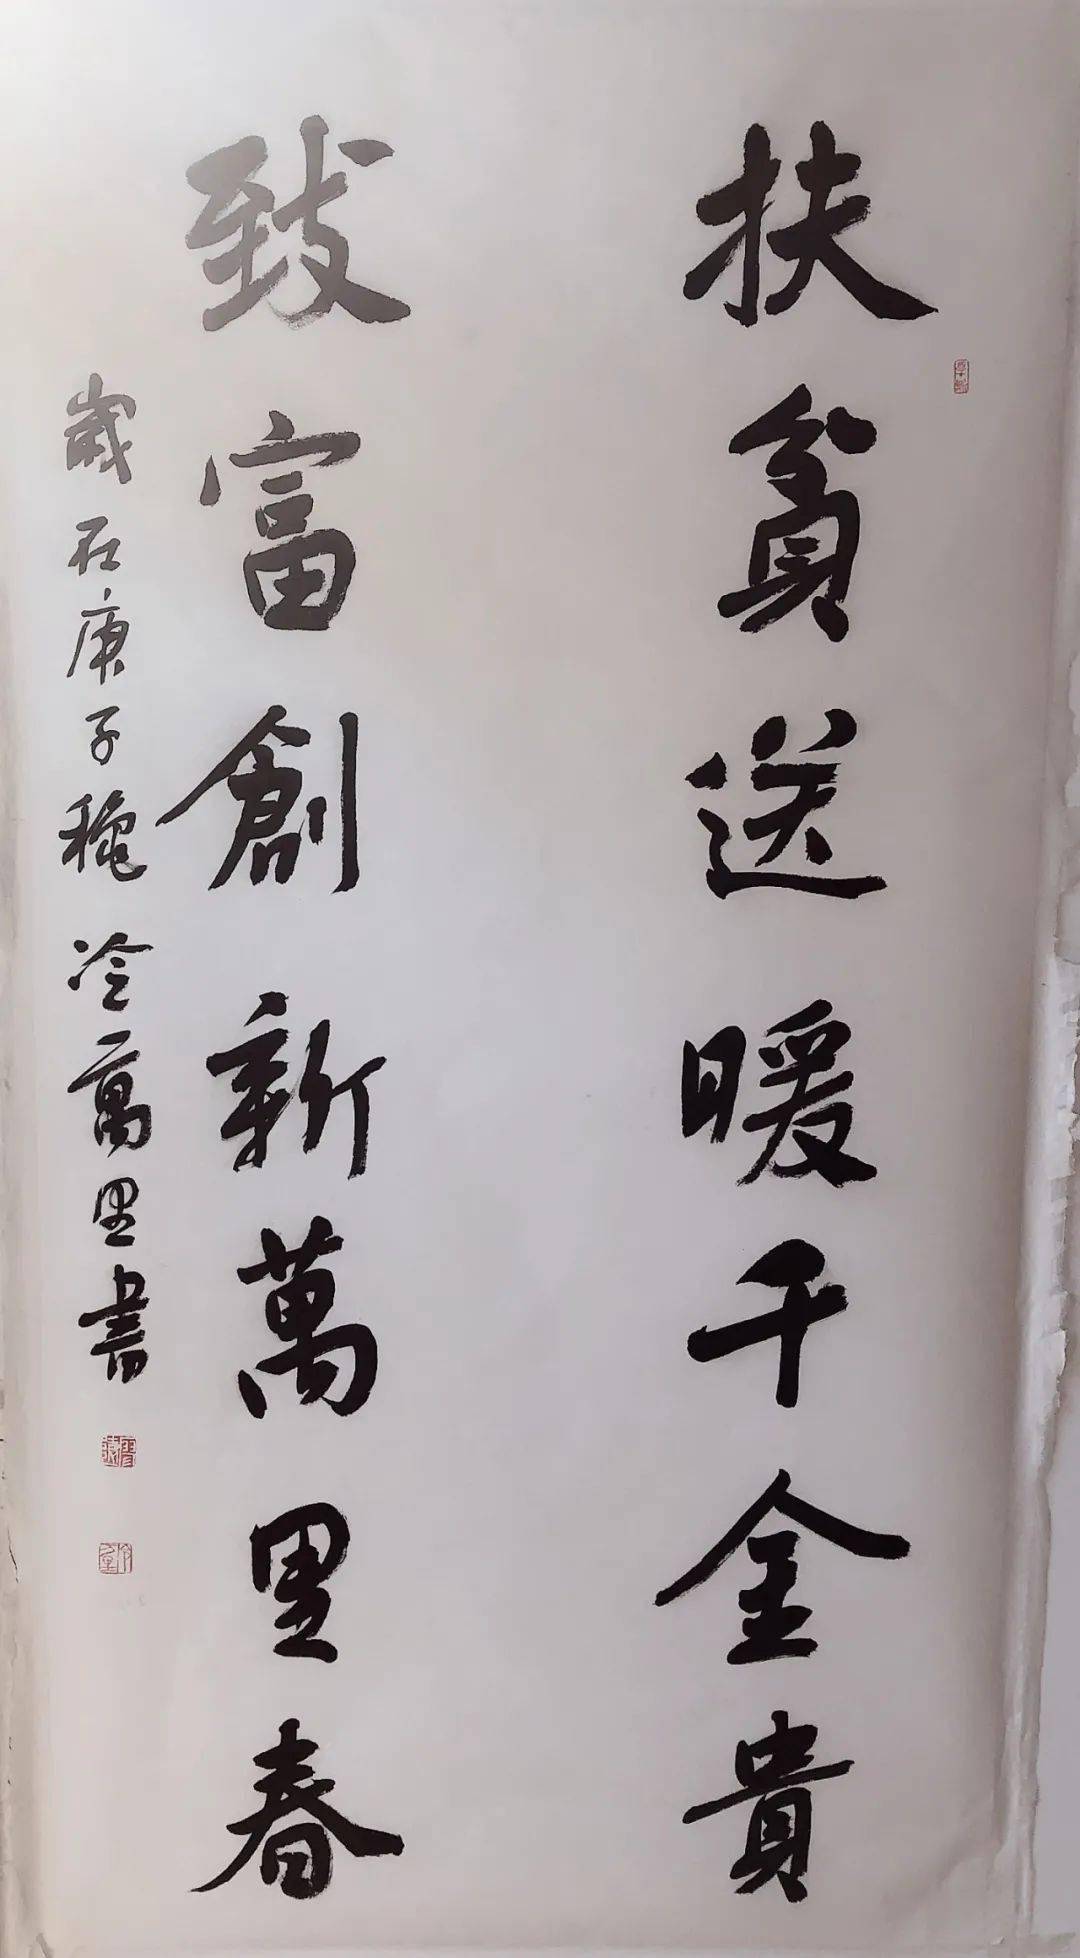 扶貧送暖千金貴
致富創新萬里春
歲在庚子龝冷萬里書